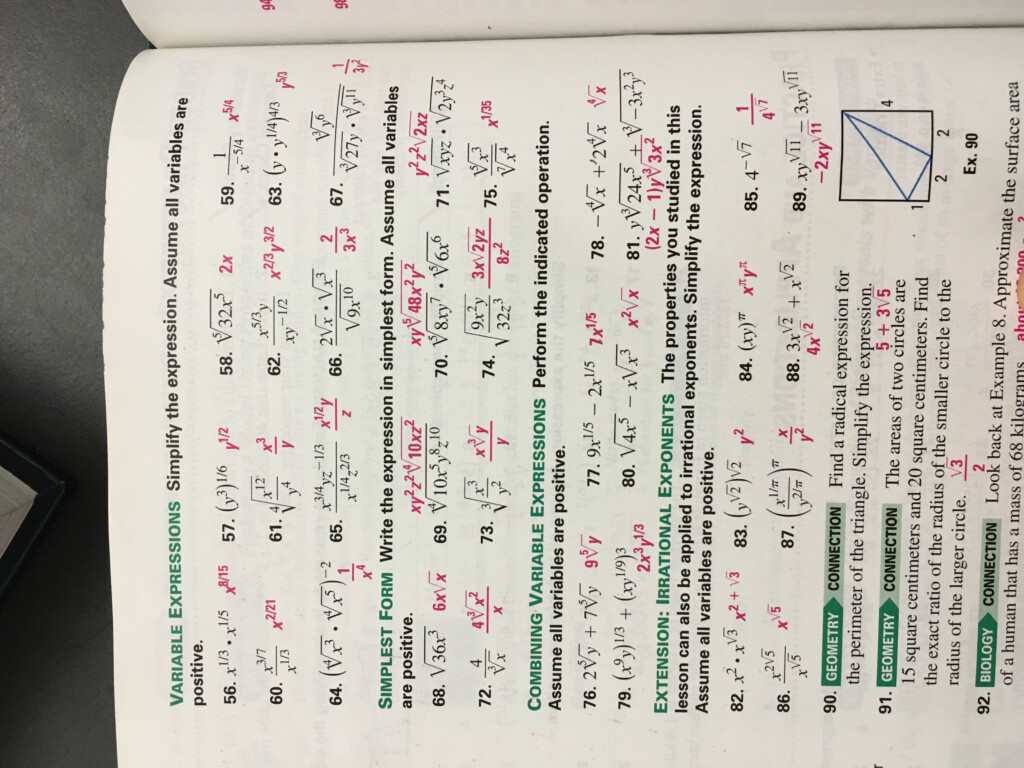 VARIABLE EXPRESSIONS Simplify the expression. Assume all variables are
positive.
56. x^{1/3} • x^{1/5} x^{8/15} 57. (y^3)^{1/6} y^{1/2} 58. \sqrt[5]{32x^5} 2x 59. \frac{1}{x^{-5/4}} x^{5/4}
60. \frac{x^{3/7}}{x^{1/3}} x^{2/21} 61. \sqrt[4]{\frac{x^{12}}{y^4}} \frac{x^3}{y} 62. \frac{x^{5/3}y}{xy^{-1/2}} x^{2/3}y^{3/2} 63. (y • y^{1/4})^{4/3} y^{5/3}
64. (\sqrt[4]{x^3} • \sqrt[4]{x^5})^{-2} \frac{1}{x^4} 65. \frac{x^{3/4}yz^{-1/3}}{x^{1/4}z^{2/3}} \frac{x^{1/2}y}{z} 66. \frac{2\sqrt{x} • \sqrt{x^3}}{\sqrt{9x^{10}}} \frac{2}{3x^3} 67. \frac{\sqrt[3]{y^6}}{\sqrt[3]{27y} • \sqrt[3]{y^{11}}} \frac{1}{3y^2}
SIMPLEST FORM Write the expression in simplest form. Assume all variables
are positive.
68. \sqrt{36x^3} 6x\sqrt{x} 69. \sqrt[4]{10x^5y^8z^{10}} xy^2z^2\sqrt[4]{10xz^2} 70. \sqrt[5]{8xy^7} • \sqrt[5]{6x^6} xy\sqrt[5]{48x^2y^2} 71. \sqrt{xyz} • \sqrt{2y^3z^4} y^2z^2\sqrt{2xz}
72. \frac{4}{\sqrt[3]{x}} \frac{4\sqrt[3]{x^2}}{x} 73. \sqrt[3]{\frac{x^3}{y^2}} \frac{x\sqrt[3]{y}}{y} 74. \sqrt{\frac{9x^2y}{32z^3}} \frac{3x\sqrt{2yz}}{8z^2} 75. \frac{\sqrt[5]{x^3}}{\sqrt[7]{x^4}} x^{1/35}
COMBINING VARIABLE EXPRESSIONS Perform the indicated operation.
Assume all variables are positive.
76. 2\sqrt[5]{y} + 7\sqrt[5]{y} 9\sqrt[5]{y} 77. 9x^{1/5} − 2x^{1/5} 7x^{1/5} 78. −\sqrt[4]{x} + 2\sqrt[4]{x} \sqrt[4]{x}
79. (x^9y)^{1/3} + (xy^{1/9})^3 2x^3y^{1/3} 80. \sqrt{4x^5} − x\sqrt{x^3} x^2\sqrt{x} 81. y\sqrt[3]{24x^5} + \sqrt[3]{−3x^2y^3} (2x − 1)y\sqrt[3]{3x^2}
EXTENSION: IRRATIONAL EXPONENTS The properties you studied in this
lesson can also be applied to irrational exponents. Simplify the expression.
Assume all variables are positive.
82. x^2 • x^{\sqrt{3}} x^{2 + \sqrt{3}} 83. (y^{\sqrt{2}})^{\sqrt{2}} y^2 84. (xy)^π x^πy^π 85. 4^{−\sqrt{7}} \frac{1}{4^{\sqrt{7}}}
86. \frac{x^{2\sqrt{5}}}{x^{\sqrt{5}}} x^{\sqrt{5}} 87. (\frac{x^{1/π}}{y^{2/π}})^π \frac{x}{y^2} 88. 3x^{\sqrt{2}} + x^{\sqrt{2}} 4x^{\sqrt{2}} 89. xy^{\sqrt{11}} − 3xy^{\sqrt{11}} −2xy^{\sqrt{11}}
90. GEOMETRY CONNECTION Find a radical expression for
the perimeter of the triangle. Simplify the expression.
5 + 3\sqrt{5}
91. GEOMETRY CONNECTION The areas of two circles are
15 square centimeters and 20 square centimeters. Find
the exact ratio of the radius of the smaller circle to the
radius of the larger circle. \frac{\sqrt{3}}{2}
1
2
2
4
Ex. 90
92. BIOLOGY CONNECTION Look back at Example 8. Approximate the surface area
of a human that has a mass of 68 kilograms.
94